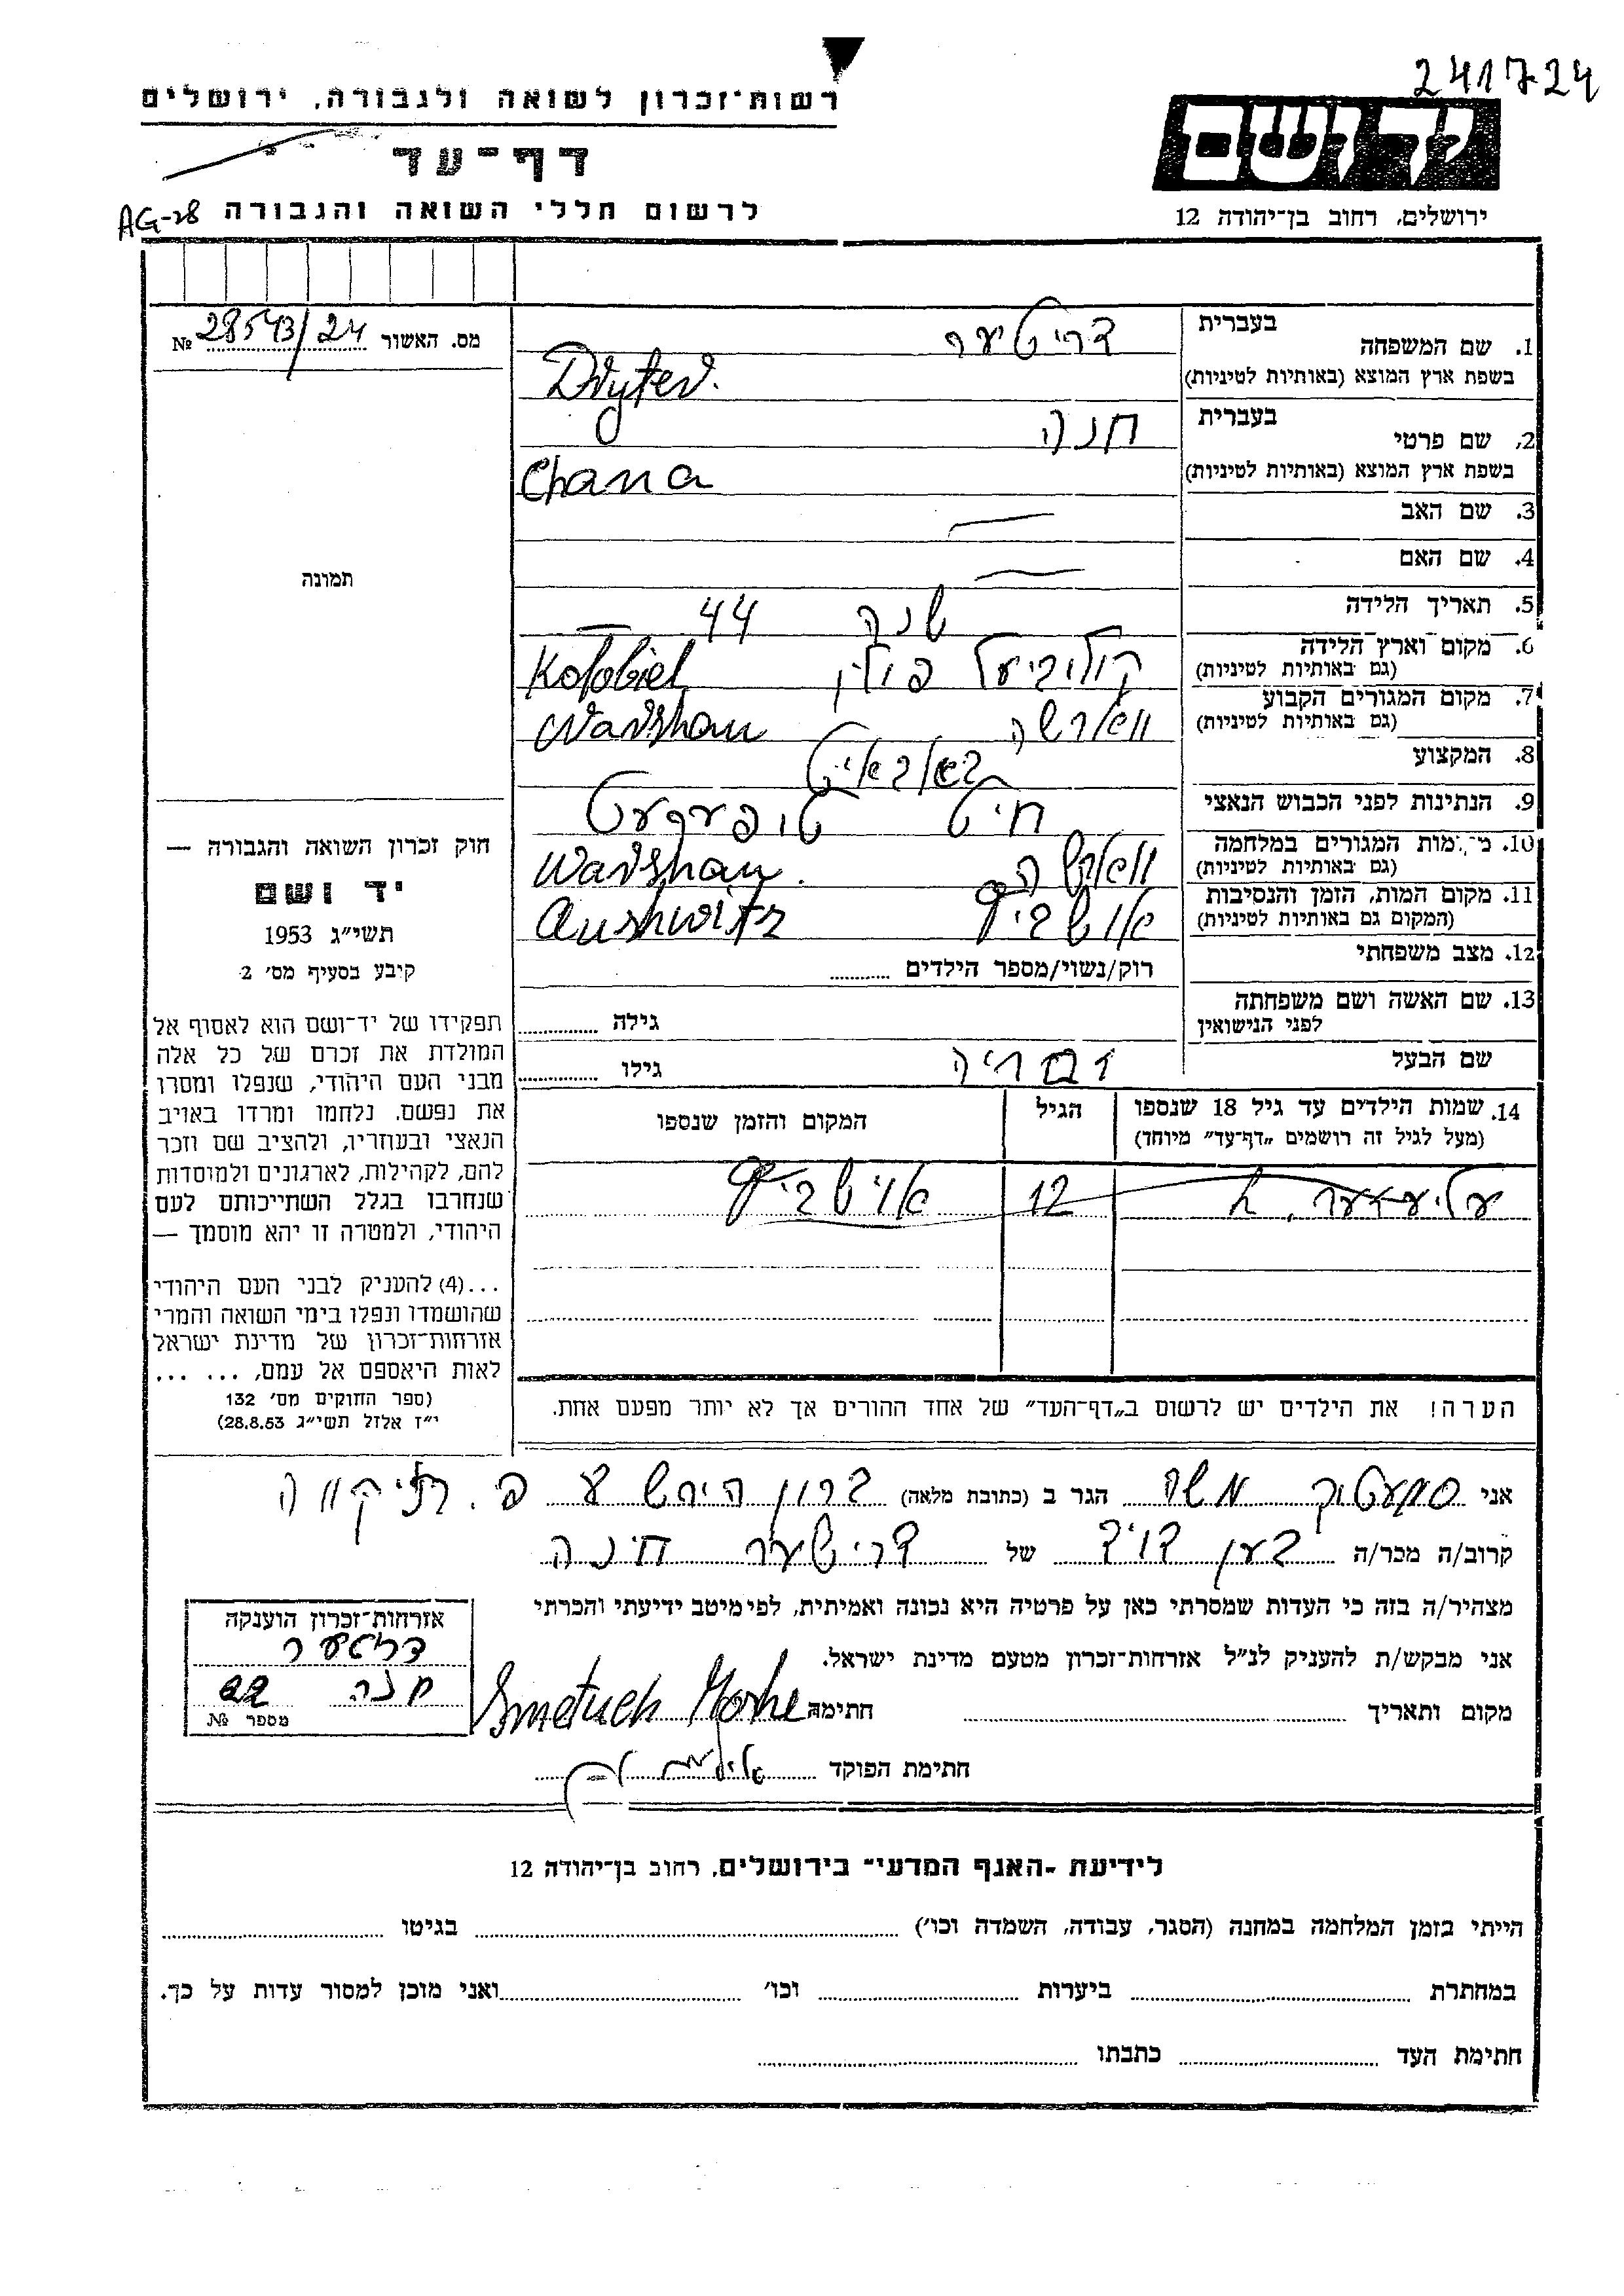 241724
רשות־זכרון לשואה ולגבורה, ירושלים
יד ושם
דף־עד
ירושלים, רחוב בן־יהודה 12
לרשום חללי השואה והגבורה
AG-28
מס. האשור 28543/24 №
1. שם המשפחה
בעברית דריטער
בשפת ארץ המוצא (באותיות לטיניות) Dryter.
2. שם פרטי
בעברית חנה
בשפת ארץ המוצא (באותיות לטיניות) Chana
3. שם האב —
4. שם האם —
תמונה
5. תאריך הלידה שנה 44
6. מקום וארץ הלידה (גם באותיות לטיניות) קולביעל פולין Kolobiel
7. מקום המגורים הקבוע (גם באותיות לטיניות) ווארשה Warshaw
8. המקצוע
9. הנתינות לפני הכבוש הנאצי
10. מקומות המגורים במלחמה (גם באותיות לטיניות) ווארשה Warshaw.
11. מקום המות, הזמן והנסיבות (המקום גם באותיות לטיניות) אושביץ Aushwitz
12. מצב משפחתי רוק/נשוי/מספר הילדים
13. שם האשה ושם משפחתה לפני הנישואין גילה
שם הבעל זכריה גילו
14. שמות הילדים עד גיל 18 שנספו
(מעל לגיל זה רושמים „דף־עד” מיוחד)
הגיל
המקום והזמן שנספו
עליעזער, 12 אוישביץ
הערה! את הילדים יש לרשום ב„דף־העד” של אחד ההורים אך לא יותר מפעם אחת.
חוק זכרון השואה והגבורה —
יד ושם
תשי״ג 1953
קיבע בסעיף מס׳ 2
תפקידו של יד־ושם הוא לאסוף אל
המולדת את זכרם של כל אלה
מבני העם היהודי, שנפלו ומסרו
את נפשם, נלחמו ומרדו באויב
הנאצי ובעוזריו, ולהציב שם וזכר
להם, לקהילות, לארגונים ולמוסדות
שנחרבו בגלל השתייכותם לעם
היהודי, ולמטרה זו יהא מוסמך —
...(4) להעניק לבני העם היהודי
שהושמדו ונפלו בימי השואה והמרי
אזרחות־זכרון של מדינת ישראל
לאות היאספם אל עמם, ... ...
(ספר החוקים מס׳ 132
י״ז אלול תשי״ג 28.8.53)
אני סמעטוק משה הגר ב (כתובת מלאה) ברון הירש פ. תיקווה
קרוב/ה מכר/ה בען דויד של דריטער חינה
מצהיר/ה בזה כי העדות שמסרתי כאן על פרטיה היא נכונה ואמיתית, לפי מיטב ידיעתי והכרתי
אני מבקש/ת להעניק לנ״ל אזרחות־זכרון מטעם מדינת ישראל.
מקום ותאריך חתימה Smetuch Moshe
חתימת הפוקד
אזרחות־זכרון הוענקה
דריטער
חנה
מספר №
לידיעת ־האגף המדעי־ בירושלים, רחוב בן־יהודה 12
הייתי בזמן המלחמה במחנה (הסגר, עבודה, השמדה וכו׳) בגיטו
במחתרת ביערות וכו׳ ואני מוכן למסור עדות על כך.
חתימת העד כתבתו